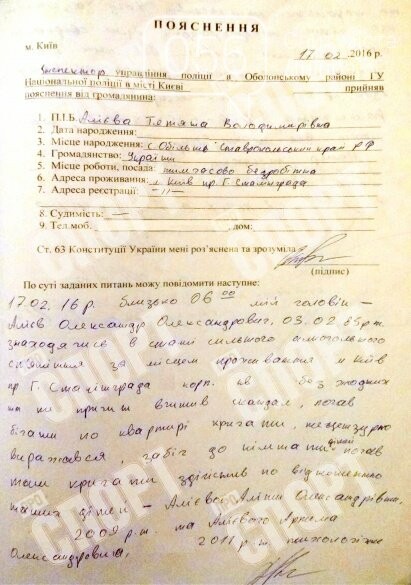 ПОЯСНЕННЯ
м. Київ 17 02 2016 р.
Інспектор управління поліції в Оболонському районі ГУ
Національної поліції в місті Києві прийняв
пояснення від громадянина:
1. П.І.Б. Алієва Тетяна Володимирівна
2. Дата народження:
3. Місце народження: с. Обільне Ставропольський край РФ
4. Громадянство: України
5. Місце роботи, посада: тимчасово безробітна
6. Адреса проживання: м. Київ пр. Г. Сталінграда
7. Адреса реєстрації: -//-
8. Судимість: —
9. Тел.моб. , дом:
Ст. 63 Конституції України мені роз'яснена та зрозуміла
(підпис)
По суті заданих питань можу повідомити наступне:
17.02.16 р. близько 06 00 мій
Алієв Олександр Олександрович, 03.02.85р.н.
знаходячись в стані сильного алкогольного
сп'яніння за місцем проживання м. Київ
пр. Г. Сталінграда корп. кв без жодних
на те причин вчинив скандал, почав
бігати по квартирі кричати, нецензурно
виражався забіг до кімнати дітей почав
там кричати здійснив по відношенню
наших дітей – Алієвої Аліни Олександрівни,
2009 р.н. та Алієвого Артема
Олександровича, 2011 р.н. психологічне
СПОРТ